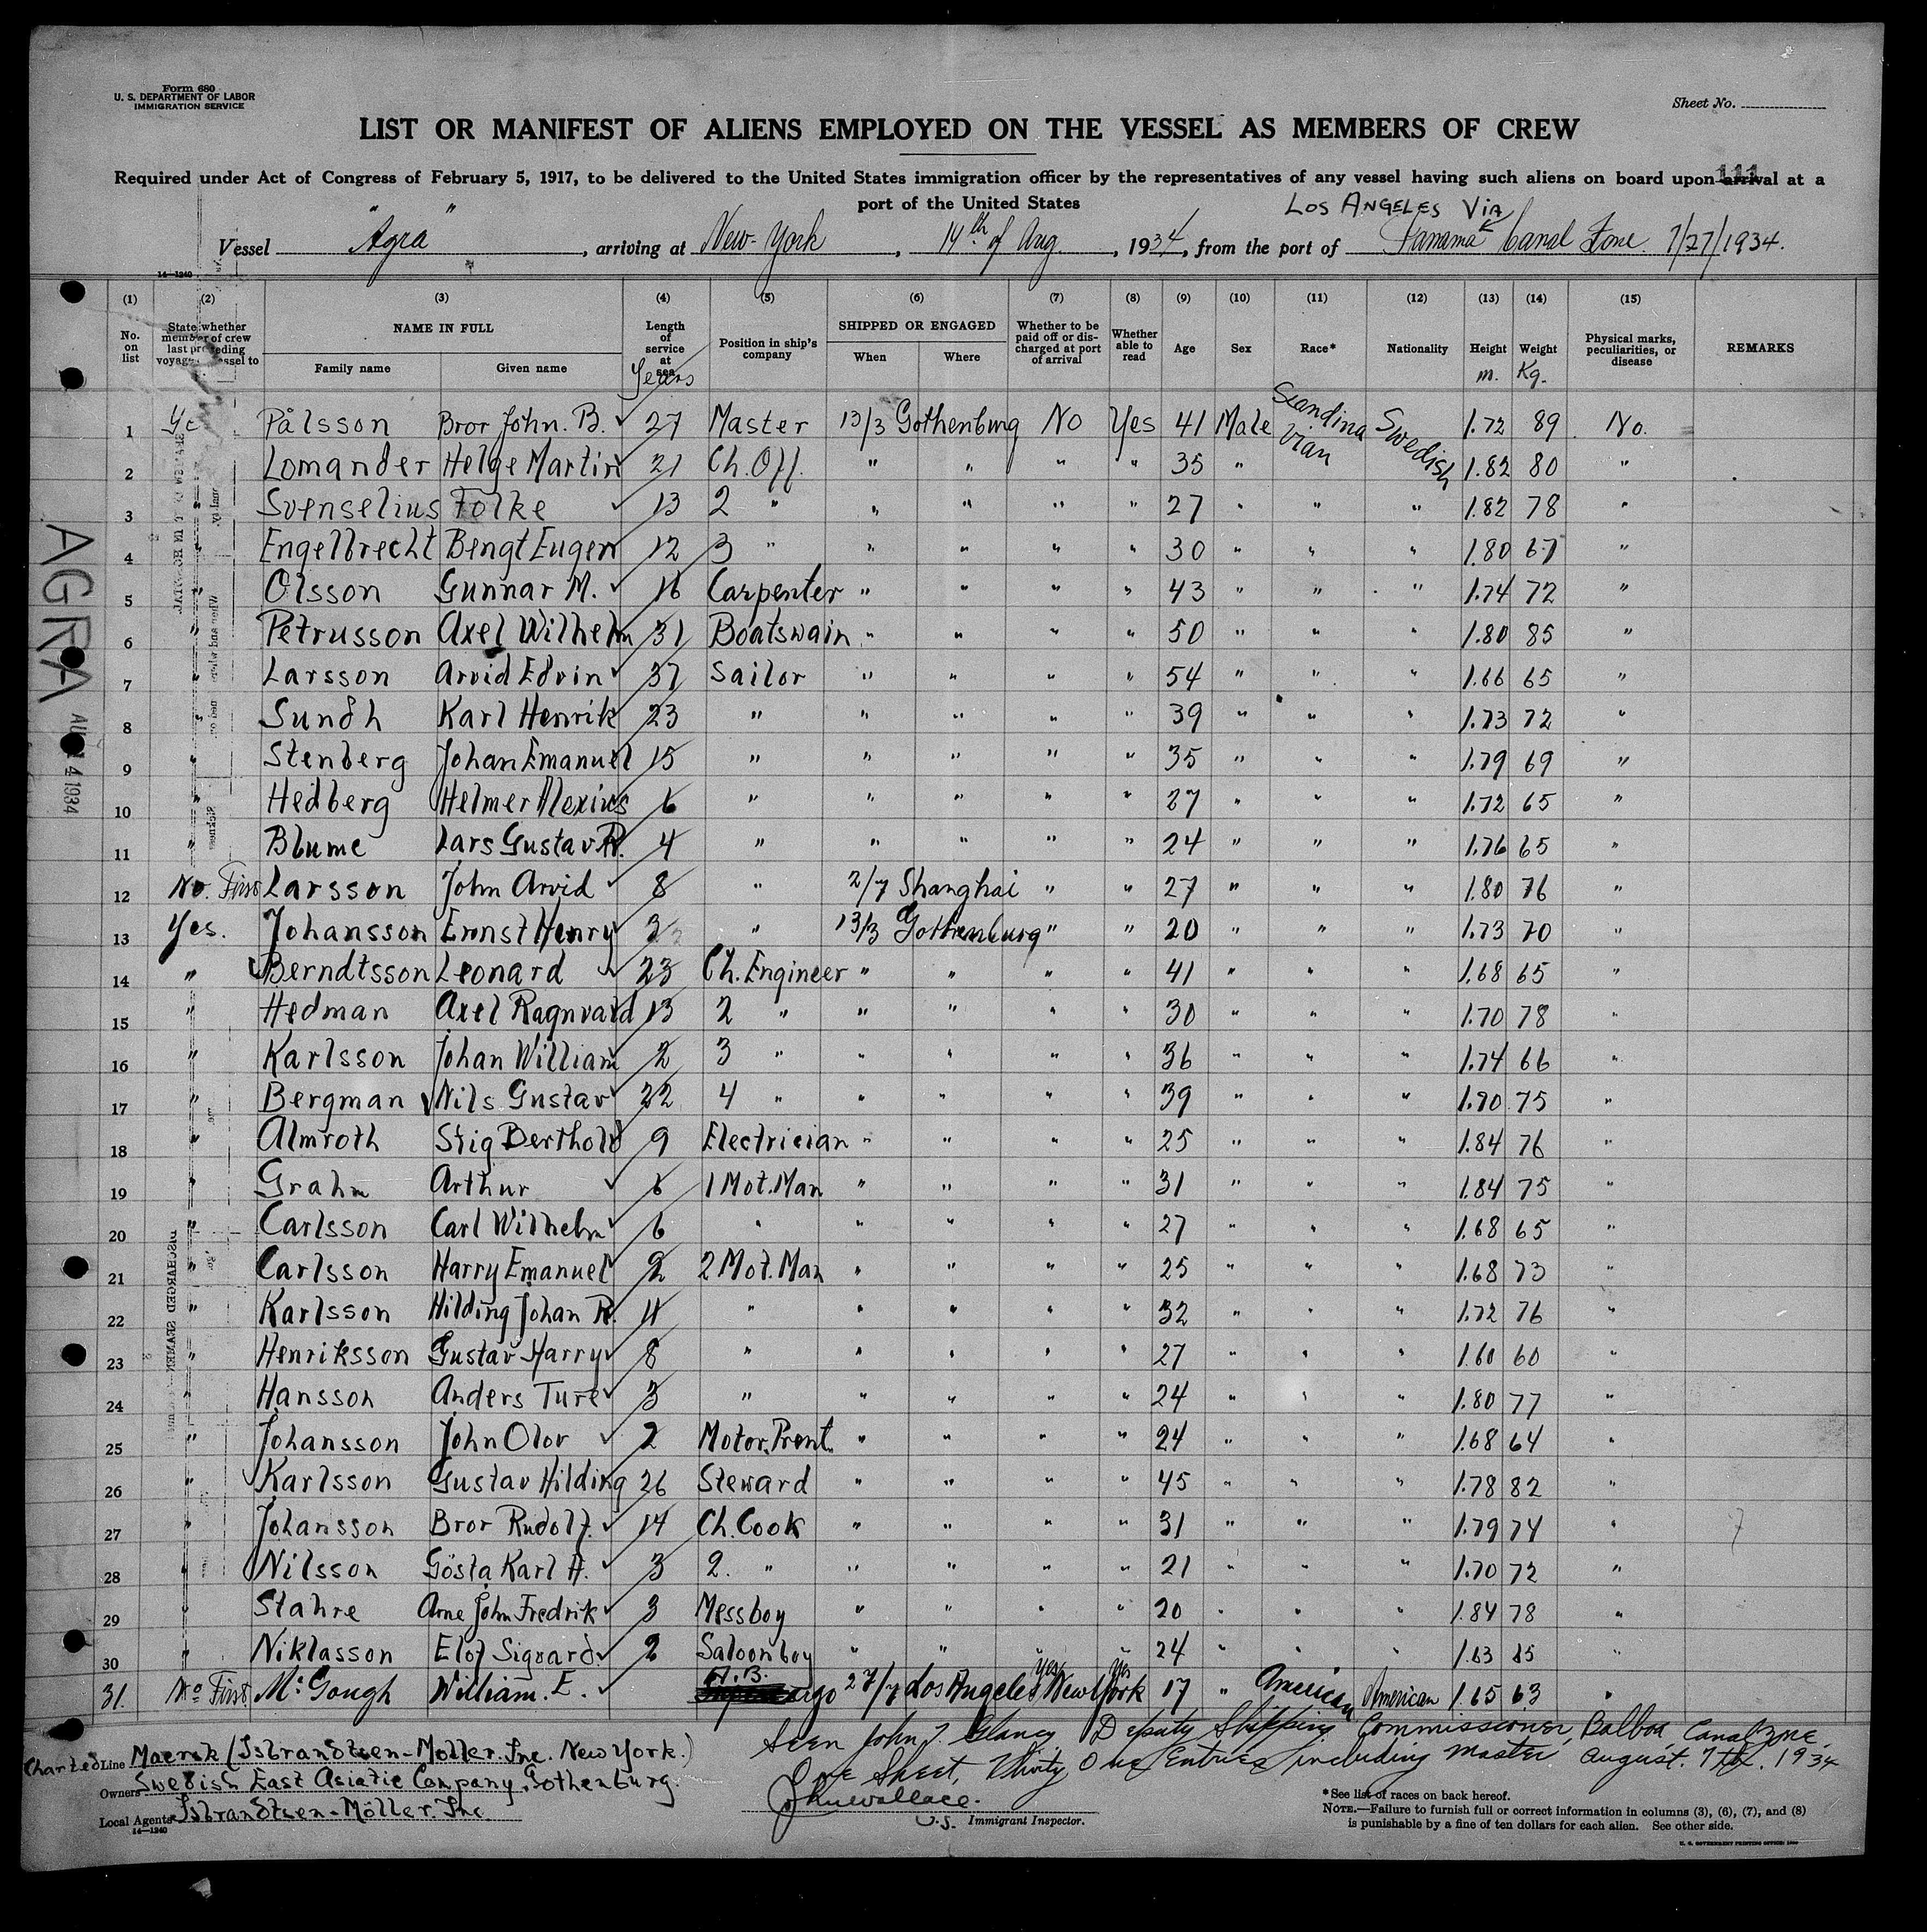 Form 680
U. S. DEPARTMENT OF LABOR
IMMIGRATION SERVICE
Sheet No.
LIST OR MANIFEST OF ALIENS EMPLOYED ON THE VESSEL AS MEMBERS OF CREW
Required under Act of Congress of February 5, 1917, to be delivered to the United States immigration officer by the representatives of any vessel having such aliens on board upon arrival at a
port of the United States
111
LOS ANGELES VIA
Vessel "Agra", arriving at New-York, 14th of Aug, 1934, from the port of Panama Canal Zone. 7/27/1934.
14-1240
(1) (2) (3) (4) (5) (6) (7) (8) (9) (10) (11) (12) (13) (14) (15)
No. on list State whether member of crew last preceding voyage vessel to NAME IN FULL Family name Given name Length of service at sea Years Position in ship's company SHIPPED OR ENGAGED When Where Whether to be paid off or discharged at port of arrival Whether able to read Age Sex Race* Nationality Height m. Weight Kg. Physical marks, peculiarities, or disease REMARKS
1 Pålsson Bror John. B. 27 Master 13/3 Gothenburg No Yes 41 Male Scandinavian Swedish 1.72 89 No.
2 Lomander Helge Martin 21 Ch. Off. " " " " 35 " 1.82 80 "
3 Svenselius Folke 13 2 " " " " " 27 " " " 1.82 78 "
4 " Engelbrecht Bengt Eugen 12 3 " " " " " 30 " " " 1.80 67 "
5 " Olsson Gunnar M. 16 Carpenter " " " " 43 " " " 1.74 72 "
6 " Petrusson Axel Wilhelm 31 Boatswain " " " " 50 " " " 1.80 85 "
7 " Larsson Arvid Edvin 37 Sailor " " " " 54 " " " 1.66 65 "
8 " Sundh Karl Henrik 23 " " " " " 39 " " " 1.73 72 "
9 " Stenberg Johan Emanuel 15 " " " " " 35 " " " 1.79 69 "
10 " Hedberg Helmer Alexius 6 " " " " " 27 " " " 1.72 65 "
11 " Blume Lars Gustav R. 4 " " " " " 24 " " " 1.76 65 "
12 No. First Larsson John Arvid 8 " 2/7 Shanghai " " 27 " " " 1.80 76 "
13 Yes. Johansson Ernst Henry 3 " 13/3 Gothenburg " " 20 " " " 1.73 70 "
14 " Berndtsson Leonard 23 Ch. Engineer " " " " 41 " " " 1.68 65 "
15 " Hedman Axel Ragnvald 13 2 " " " " " 30 " " " 1.70 78 "
16 " Karlsson Johan William 2 3 " " " " " 36 " " " 1.74 66 "
17 " Bergman Nils Gustav 22 4 " " " " " 39 " " " 1.70 75 "
18 " Almroth Stig Berthold 9 Electrician " " " " 25 " " " 1.84 76 "
19 " Grahn Arthur 6 1 Mot. Man " " " " 31 " " " 1.84 75 "
20 " Carlsson Carl Wilhelm 6 " " " " " 27 " " " 1.68 65 "
21 " Carlsson Harry Emanuel 2 2 Mot. Man " " " " 25 " " " 1.68 73 "
22 " Karlsson Hilding Johan R. 11 " " " " " 32 " " " 1.72 76 "
23 " Henriksson Gustav Harry 8 " " " " " 27 " " " 1.60 60 "
24 " Hansson Anders Ture 3 " " " " " 24 " " " 1.80 77 "
25 " Johansson John Olov 2 Motor. " " " " 24 " " " 1.68 64 "
26 " Karlsson Gustav Hilding 26 Steward " " " " 45 " " " 1.78 82 "
27 " Johansson Bror Rudolf. 14 Ch. Cook " " " " 31 " " " 1.79 74 "
28 " Nilsson Gösta Karl A. 3 2. " " " " " 21 " " " 1.70 72 "
29 " Stahre Arne John Fredrik 3 Messboy " " " " 20 " " " 1.84 78 "
30 " Niklasson Elof Sigvard. 2 Saloonboy " " " " 24 " " " 1.63 "
31. No First. McGough William. E. A.B. 27/7 Los Angeles Yes New York Yes 17 " American American 1.65 63 "
Charted Line Maersk (Isbrandtsen-Moller. Inc. New York.)
Owners Swedish East Asiatic Company, Gothenburg.
Local Agents Isbrandtsen-Möller. Inc.
14-1240
Seen John J. Deputy Shipping Commissioner, Balboa, Canal Zone.
One Sheet, Thirty One Entries including Master, August. 7th. 1934
U.S. Immigrant Inspector.
*See list of races on back hereof.
NOTE.—Failure to furnish full or correct information in columns (3), (6), (7), and (8)
is punishable by a fine of ten dollars for each alien. See other side.
AGRA
1934